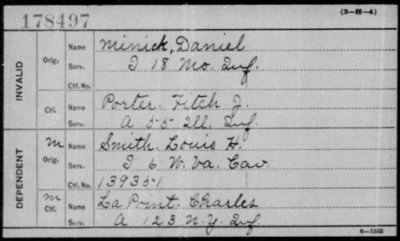 178497
(3-H-4)
INVALID
Orig. Name Minick, Daniel
Serv. I 18 Mo. Inf.
Ctf. No.
Ctf. Name Porter. Fitch J.
Serv. A 55 Ill. Inf.
DEPENDENT
M Orig. Name Smith. Louis H.
Serv. I 6 W. Va. Cav
Ctf. No. 139351
M Ctf. Name La Point. Charles
Serv. A 123 N.Y. Inf